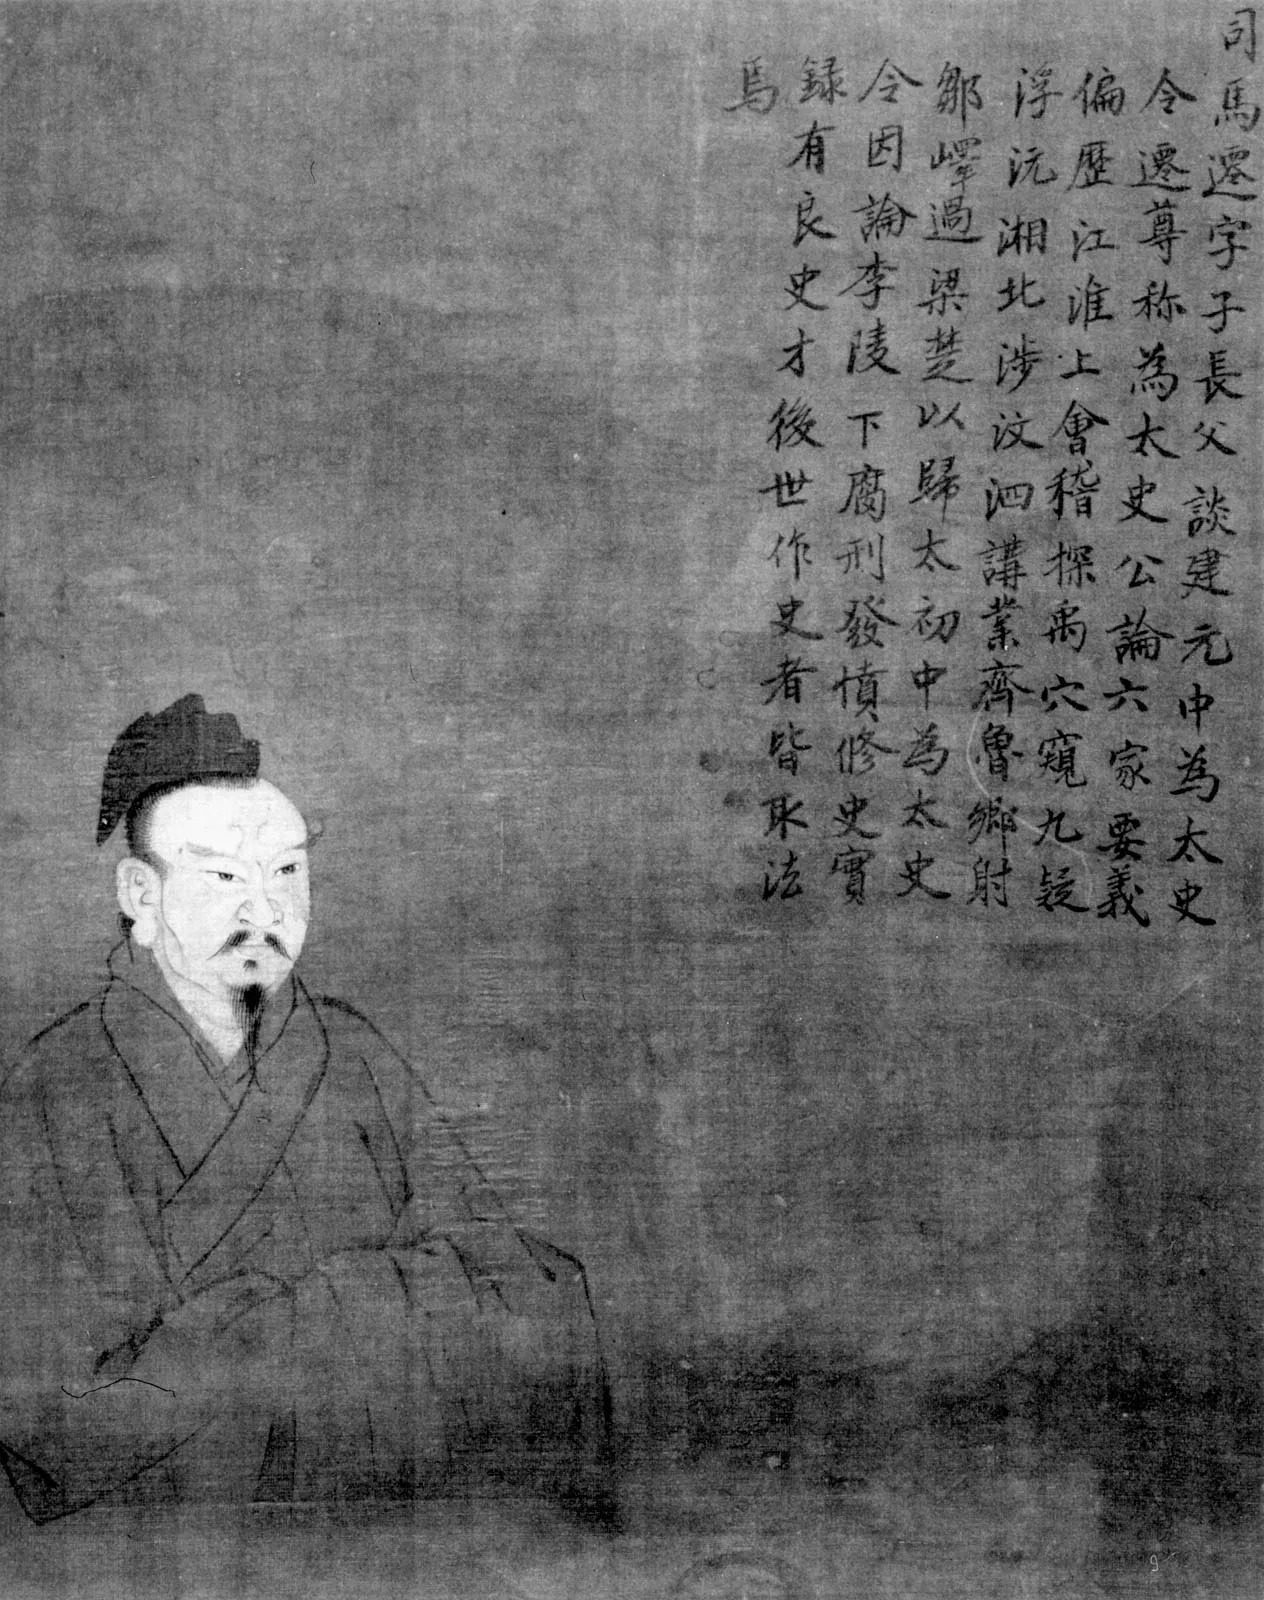 司馬遷字子長父談建元中為太史
令遷尊称為太史公論六家要義
偏歴江淮上會稽探禹穴窺九疑
浮沅湘北渉汶泗講業齊魯鄉射
鄒嶧過梁楚以歸太初中為太史
令因論李陵下腐刑發憤修史實
録有良史才後世作史者皆取法
焉